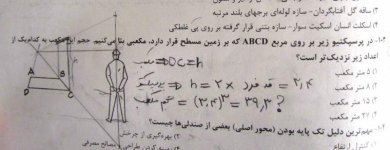 ۳) ساقه گل آفتابگردان - سازه لوله‌ای برجهای بلند مرتبه
۴) اسکلت انسان اسکیت سوار - سازه بتنی قرار گرفته بر روی پی غلطکی
در پرسپکتیو زیر بر روی مربع ABCD که بر زمین مسطح قرار دارد، مکعبی بنا می‌کنیم. حجم این مکعب به کدام‌یک از
اعداد زیر نزدیک‌تر است؟
۵ متر مکعب
۸ متر مکعب
۱۵ متر مکعب
۲۷ متر مکعب
مکعب ⇒ DC = h
پرسپکتیو ⇒ h = ۲ × قد فرد = ۳٫۴
حجم مکعب = (۳٫۴)^۳ = ۳۹٫۳ ?
A
B
C
مهم‌ترین دلیل تک پایه بودن (محور اصلی) بعضی از صندلی‌ها چیست؟
۲) بهره‌گیری از چرخش